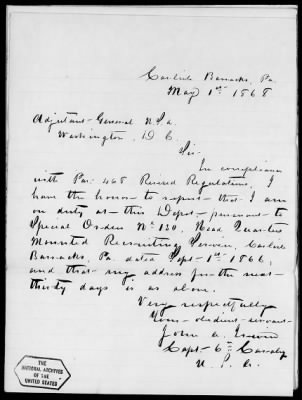 Carlisle Barracks, Pa.
May 1st 1868
Adjutant-General U.S.A.
Washington, D.C.
Sir
In compliance
with Par: 468 Revised Regulations, I
have the honor to report that I am
on duty at this Depot pursuant to
Special Orders No 120, Head Quarters
Mounted Recruiting Service, Carlisle
Barracks, Pa. dated Sept 1st 1866,
and that my address for the next
thirty days is as above.
Very respectfully
Your obedient servant
John A. Irwin
Capt. 6th Cavalry
U.S.A.
THE
NATIONAL ARCHIVES
OF THE
UNITED STATES